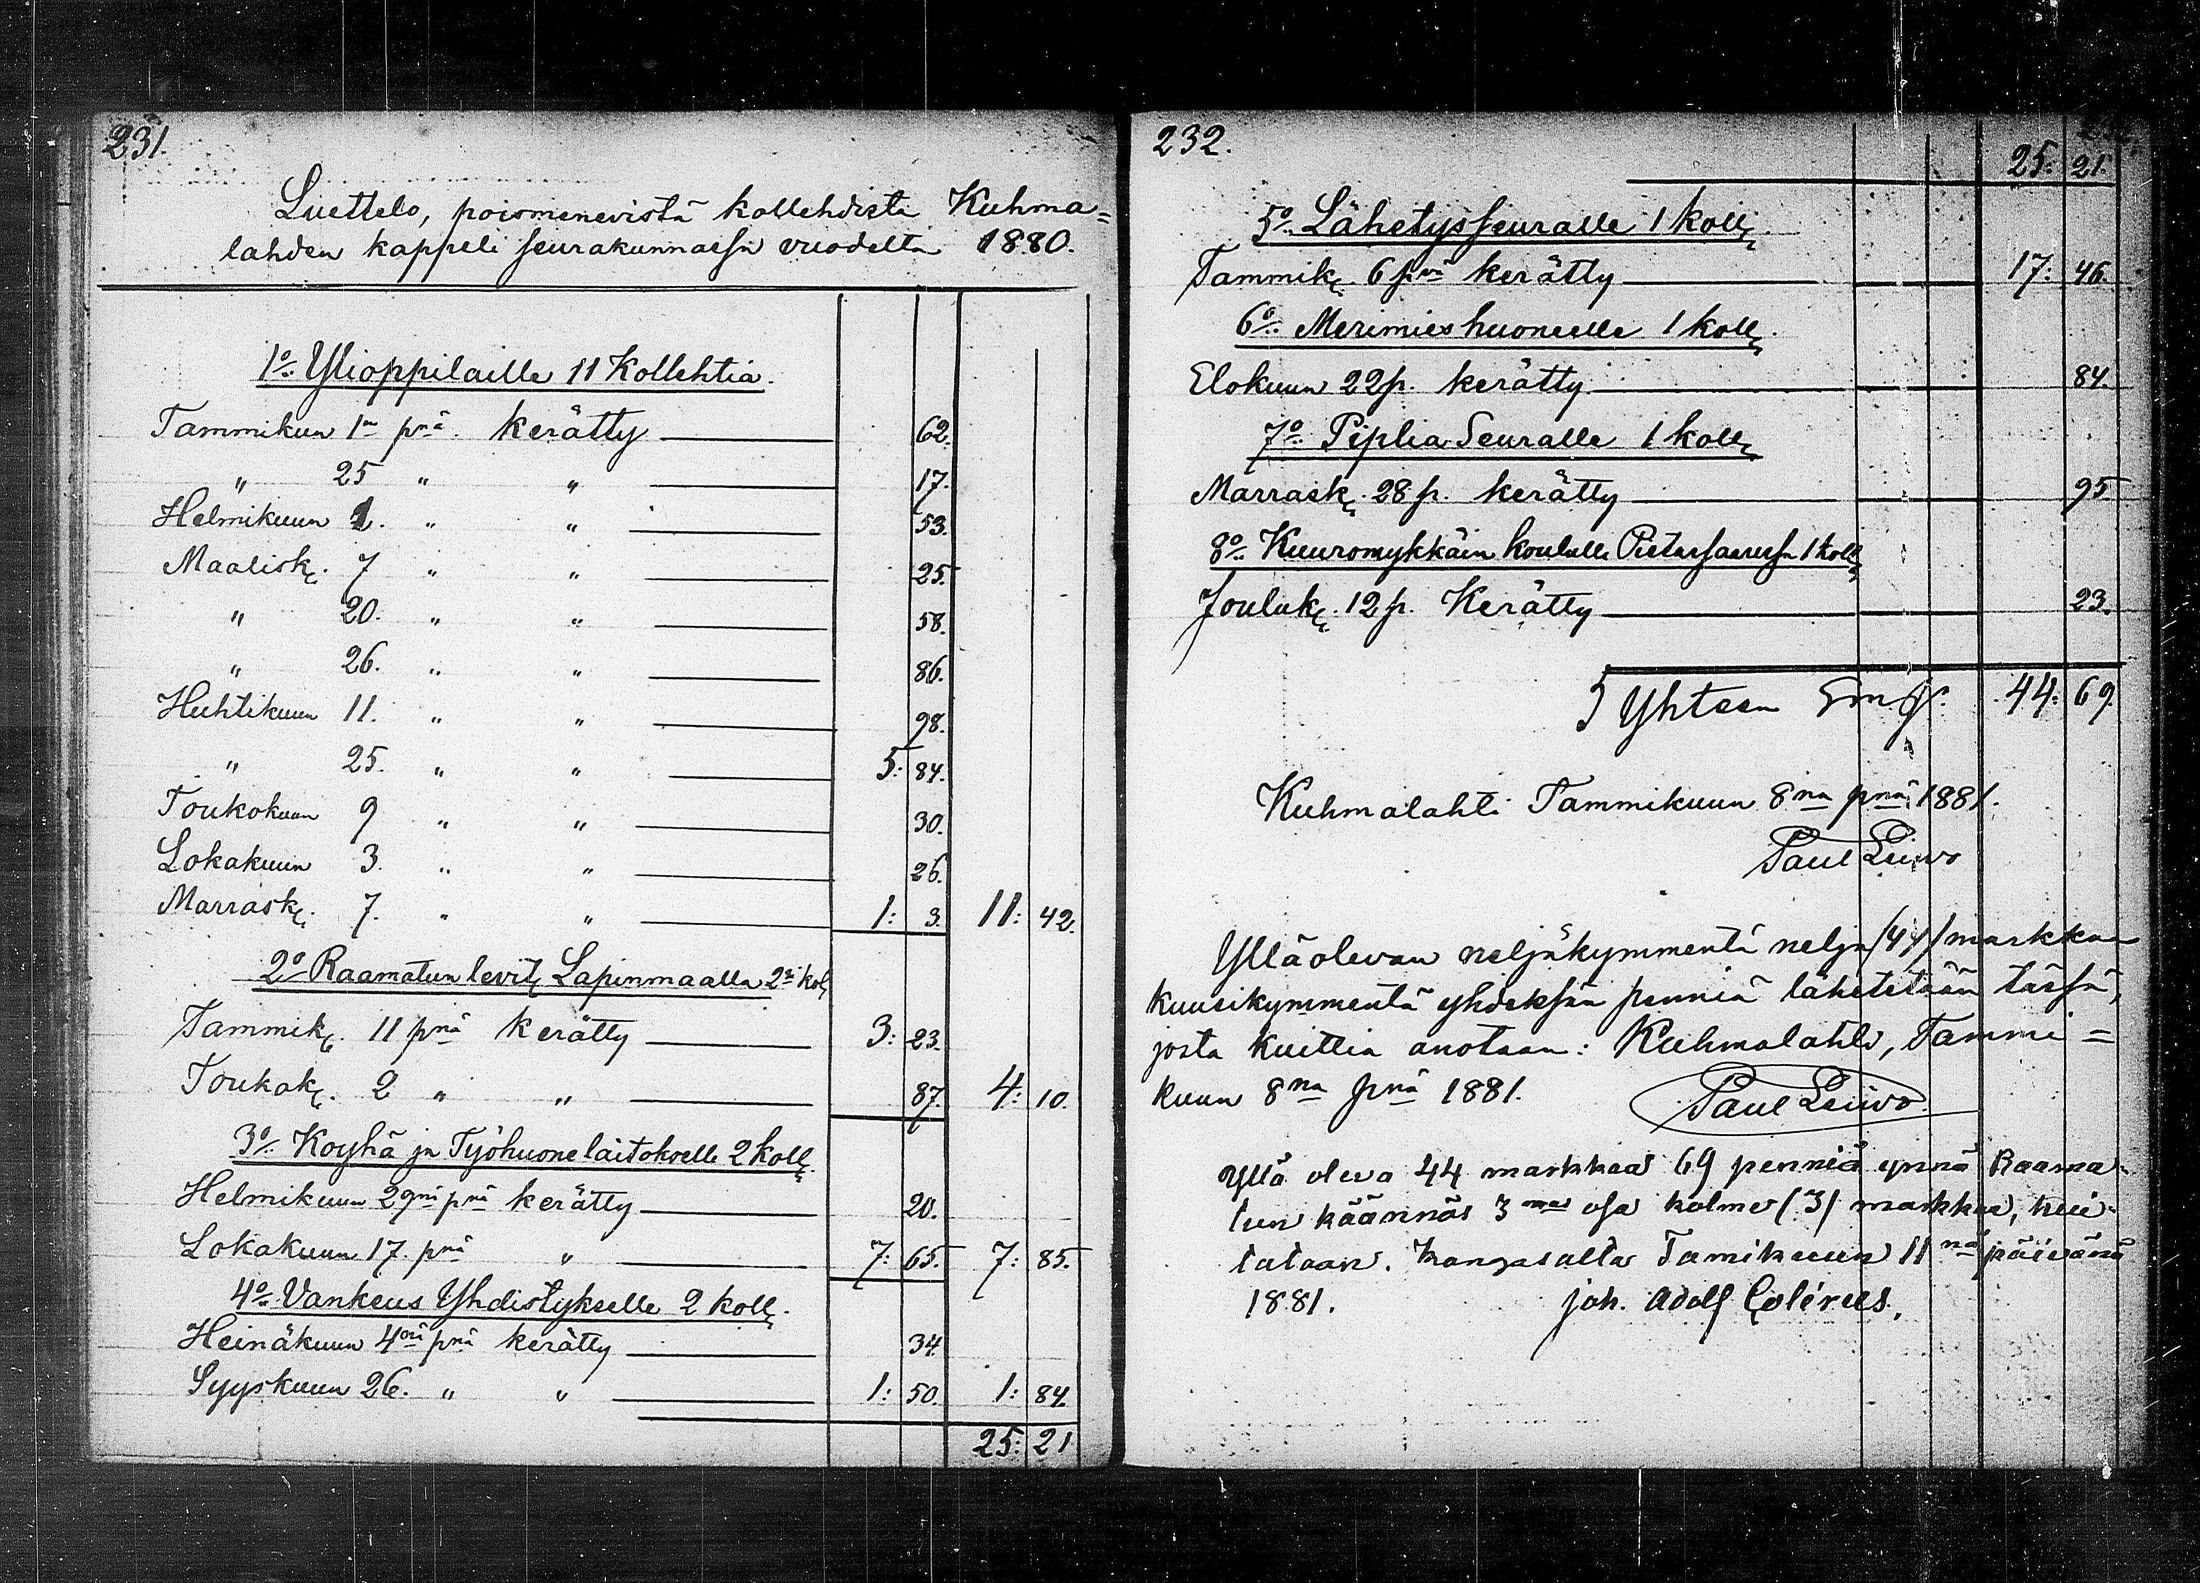 231.
Luettelo, poismenevistä kollehdista Kuhma=
lahden kappeli seurakunnassa vuodelta 1880.
1o. Ylioppilaille 11 Kollehtia.
Tammikuun 1n pnä. kerätty 62.
" 25 " " 17.
Helmikuun 1. " " 53.
Maalisk. 7 " " 25.
" 20. " " 58.
" 26. " " 86.
Huhtikuun 11. " " 98.
" 25. " " 5: 84.
Toukokuun 9 " " 30.
Lokakuun 3. " " 26.
Marrask. 7. " " 1: 3. 11: 42.
2o Raamatun levit. Lapinmaalla 2si kol.
Tammik. 11 pnä kerätty 3: 23.
Toukok. 2 " " 87. 4: 10.
3o. Koyhä ja Työhuone laitokselle 2 koll.
Helmikuun 29nä pnä kerätty 20.
Lokakuun 17. pnä " 7: 65. 7: 85.
4o. Vankeus Yhdistykselle 2 koll.
Heinäkuun 4nä pnä kerätty 34.
Syyskuun 26. " " 1: 50. 1: 84.
25: 21
232.
25: 21.
5o. Lähetysseuralle 1 koll.
Tammik. 6 pnä kerätty 17: 46.
6o. Merimieshuoneelle 1 koll.
Elokuun 22 p. kerätty 84.
7o. Piplia Seuralle 1 koll.
Marrask. 28 p. kerätty 95
8o. Kuuromykkäin koululle Pietarsaaressa 1 koll.
Jouluk. 12 p. Kerätty 23.
Yhteen Smf. 44: 69.
Kuhmalahti Tammikuun 8na pnä 1881.
Paul Leivo
Ylläolevan neljäkymmentä neljä (44) markkaa
kuusikymmentä yhdeksän penniä lähetetään tässä,
josta kuittia anotaan: Kuhmalahti, Tammi=
kuun 8na pnä 1881.
Paul Leivo.
Yllä oleva 44 markkaa 69 penniä ynnä Raama-
tun käännös 3mas osa kolme (3) markkaa, kui-
tataan. Kangasalta Tamikuun 11nä päivänä
1881. Joh. Adolf Colérus.